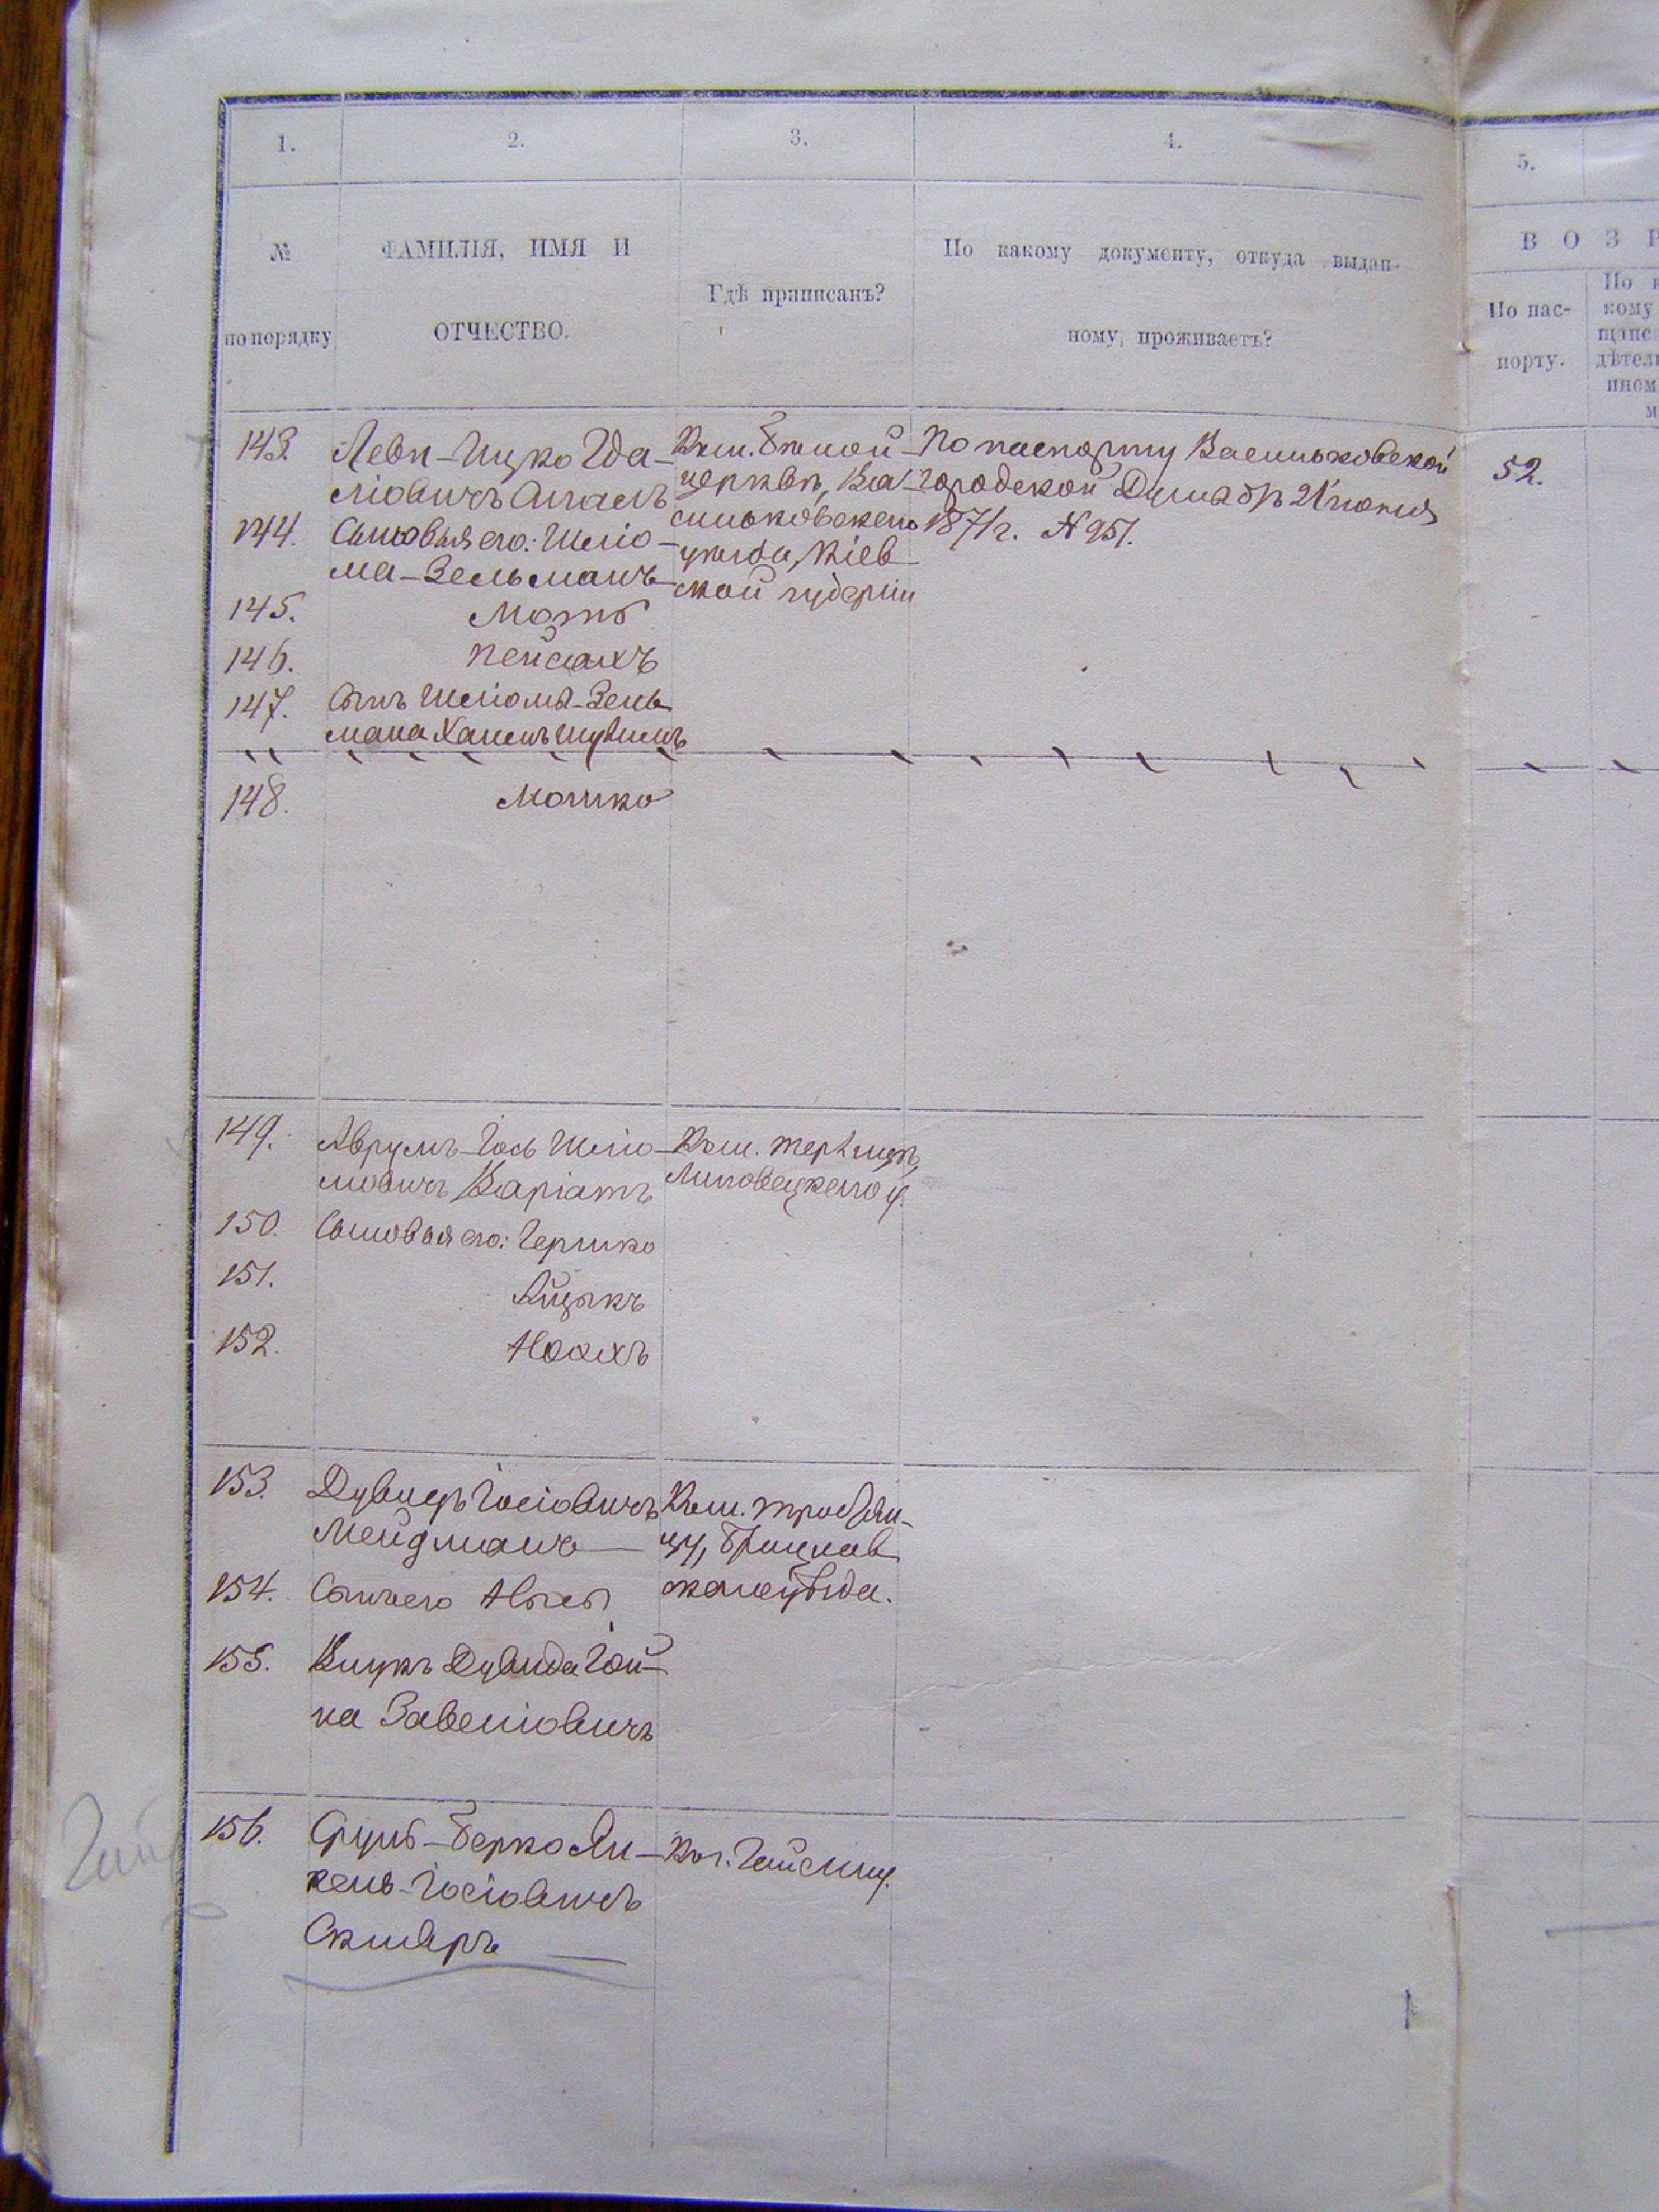 1.
2.
3.
4.
5.
№
по порядку
ФАМИЛІЯ, ИМЯ И
ОТЧЕСТВО.
Гдѣ приписанъ?
По какому документу, откуда выдан-
ному, проживаетъ?
В О З Р
По пас-
порту.
143. Леви-Ицко Гда-
ліовичъ
Къ м. Бѣлой
церкви, Ва-
сильковскаго
уѣзда, Кіев-
ской губерніи
По паспорту Васильковской
городской Думы отъ 21 іюня
1871 г. № 951.
52.
144. Сыновья его: Шліо-
ма-Зельманъ
145. Мотя
146. Пейсахъ
147. Сынъ Шліомы-Зель-
мана
148. Мошко
149. Аврумъ-Іось Шліо-
мовичъ Каріатъ
Къ м.
Липовецкаго у.
150. Сыновья его: Гершко
151. Айцыкъ
152. Ноахъ
153. Дувидъ Іосіовичъ
Мейдманъ
Къ м. Тростян-
цу, Брацлав-
скаго уѣзда.
154. Сынъ его
155. Внукъ Дувида Іой-
на Завеліовичъ
156. Сруль-Берко Ян-
кель-Іосіовичъ
Скляръ
Къ г. Гайсину.